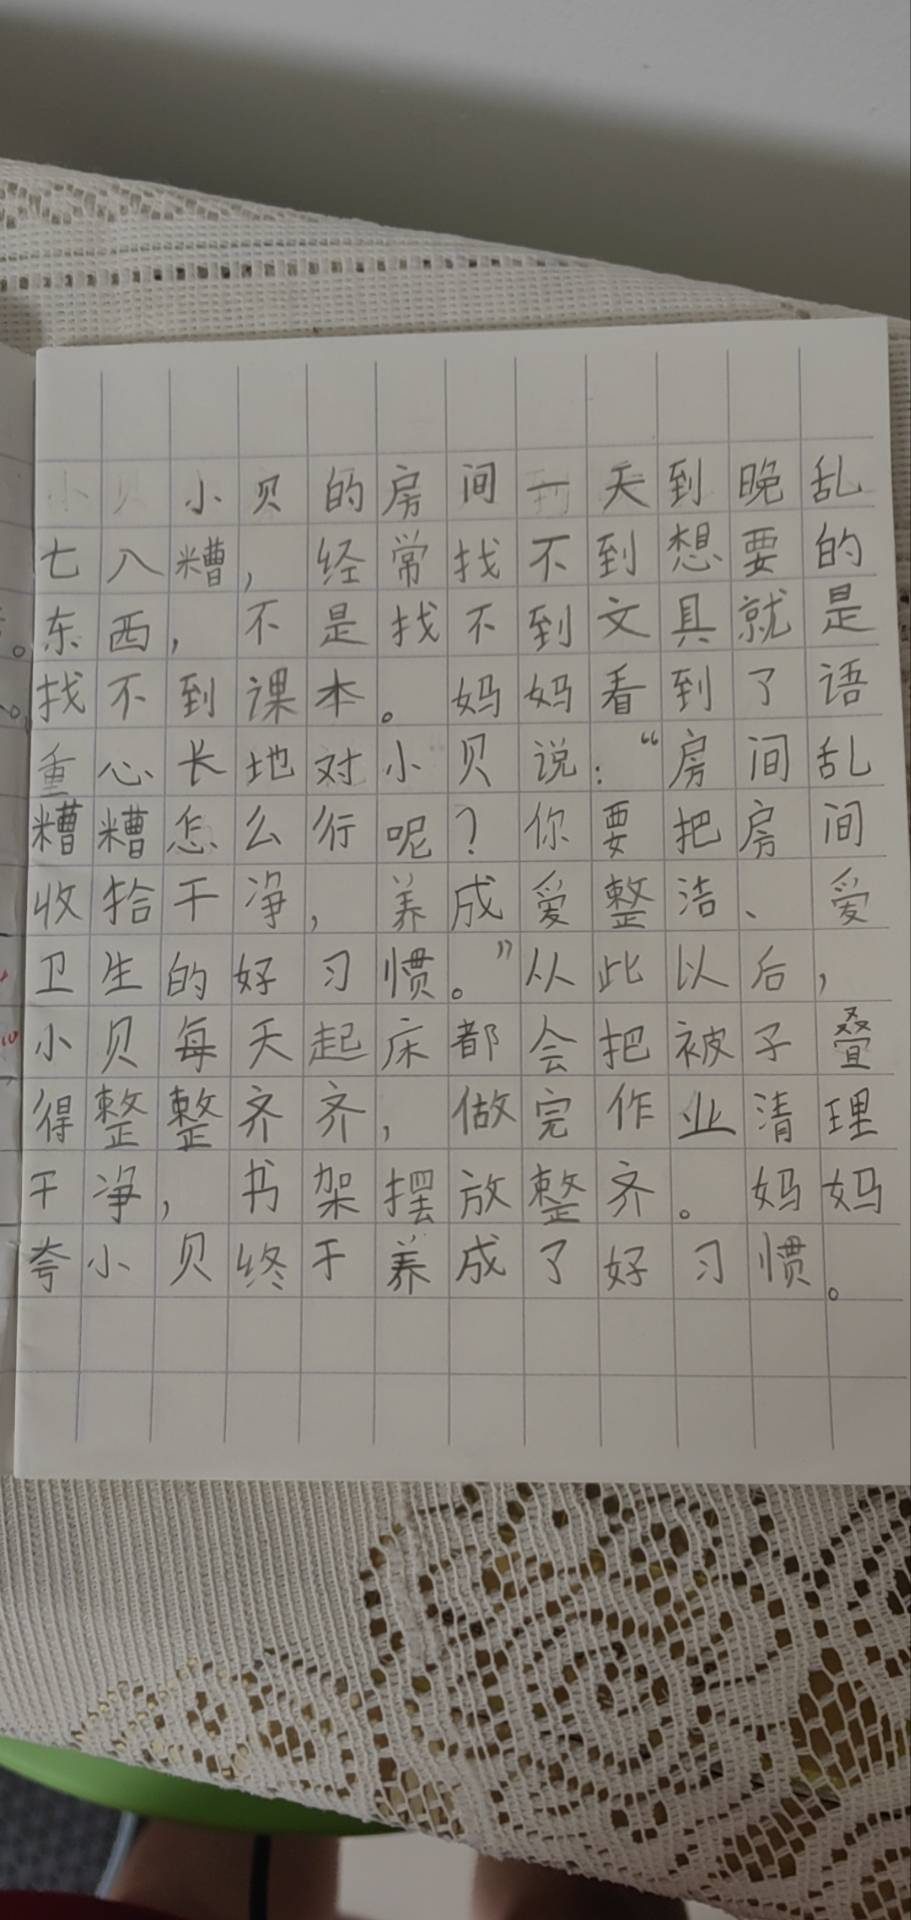 小贝的房间一天到晚乱
七八糟，经常找不到想要的
东西，不是找不到文具就是
找不到课本。妈妈看到了语
重心长地对小贝说：“房间乱
糟糟怎么行呢？你要把房间
收拾干净，养成爱整洁、爱
卫生的好习惯。”从此以后，
小贝每天起床都会把被子叠
得整整齐齐，做完作业清理
干净，书架摆放整齐。妈妈
夸小贝终于养成了好习惯。